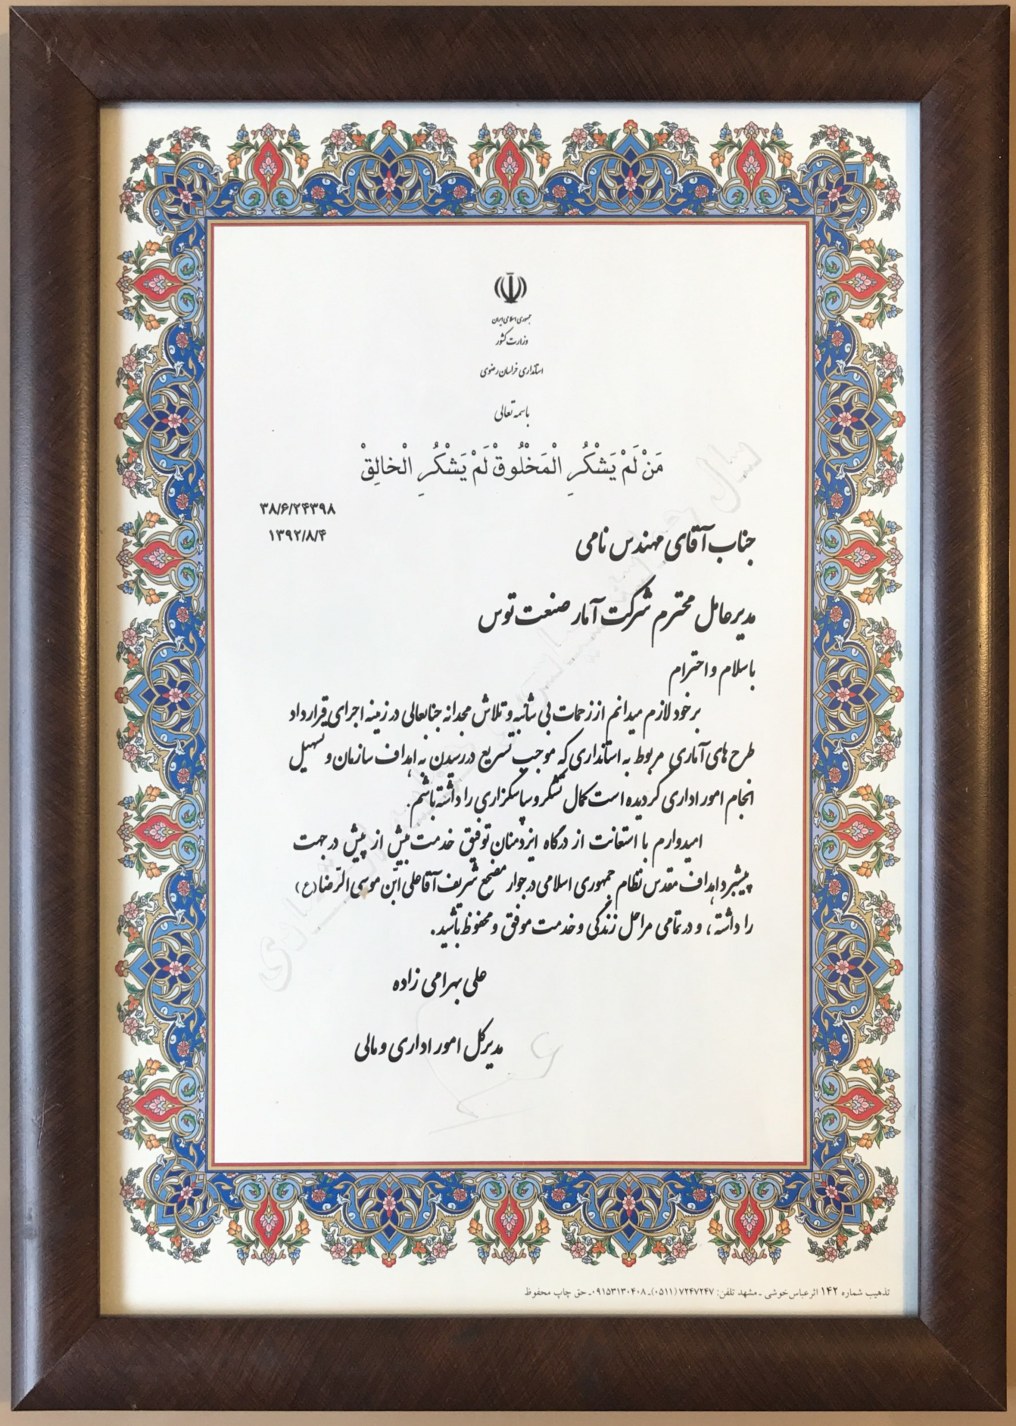 جمهوری اسلامی ایران
وزارت کشور
استانداری خراسان رضوی
باسمه تعالی
مَنْ لَمْ یَشْکُرِ الْمَخْلُوقْ لَمْ یَشْکُرِ الْخالِقْ
۳۸/۶/۲۴۳۹۸
۱۳۹۲/۸/۴
جناب آقای مهندس نامی
مدیرعامل محترم شرکت آمار صنعت توس
با سلام و احترام
برخود لازم میدانم از زحمات بی شائبه و تلاش مجدانه جنابعالی در زمینه اجرای قرارداد
طرح های آماری مربوط به استانداری که موجب تسریع در رسیدن به اهداف سازمان و تسهیل
انجام امور اداری گردیده است کمال تشکر و سپاسگزاری را داشته باشم.
امیدوارم با استعانت از درگاه ایزدمنان توفیق خدمت بیش از پیش در جهت
پیشبرد اهداف مقدس نظام جمهوری اسلامی در جوار مضجع شریف آقا علی ابن موسی الرضا (ع)
را داشته، و در تمامی مراحل زندگی و خدمت موفق و محفوظ باشید.
علی بهرامی زاده
مدیرکل امور اداری و مالی
تذهیب شماره ۱۴۲ اثر عباس خوشی ـ مشهد تلفن: ۷۲۴۷۲۴۷ (۰۵۱۱)ـ ۰۹۱۵۳۱۳۰۴۰۸ـ حق چاپ محفوظ